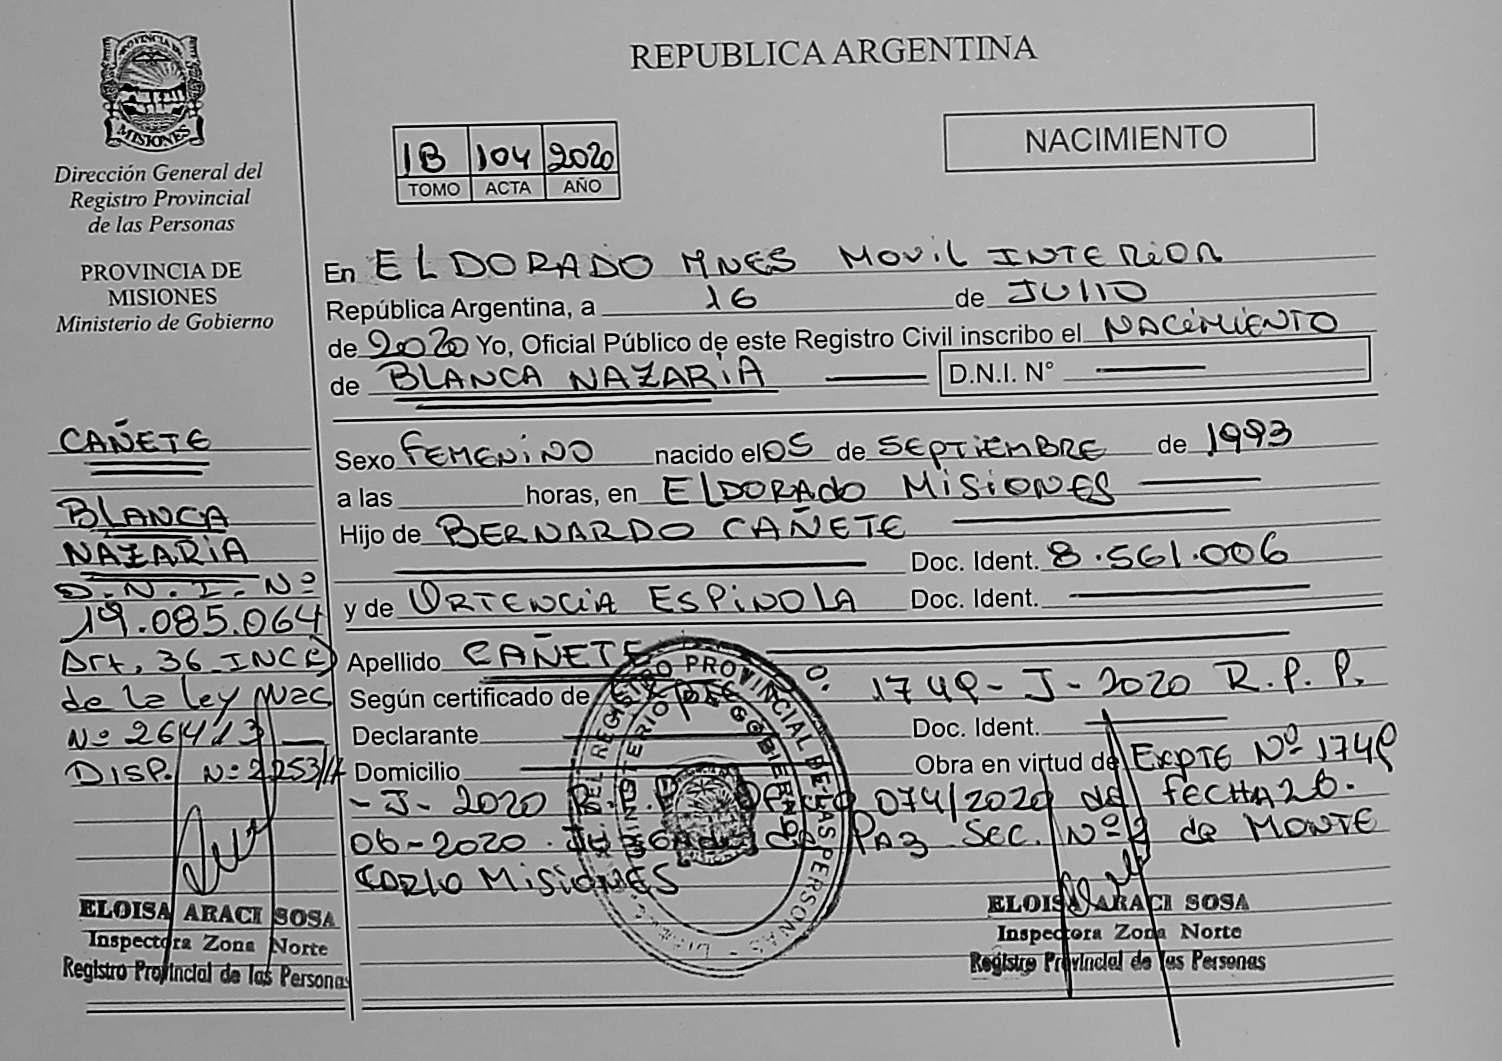 PROVINCIA DE
MISIONES
Dirección General del
Registro Provincial
de las Personas
PROVINCIA DE
MISIONES
Ministerio de Gobierno
CAÑETE
BLANCA
NAZARIA
D.N.I. Nº
19.085.064
Art. 36 INC C)
de la ley Nac
Nº 26413
DISP. Nº 2253/17
ELOISA ARACI SOSA
Inspectora Zona Norte
Registro Provincial de las Personas
REPUBLICA ARGENTINA
1B 104 2020
TOMO ACTA AÑO
NACIMIENTO
En ELDORADO MNES MOVIL INTERIOR
República Argentina, a 16 de JULIO
de 2020 Yo, Oficial Público de este Registro Civil inscribo el NACIMIENTO
de BLANCA NAZARIA D.N.I. N°
Sexo FEMENINO nacido el 05 de SEPTIEMBRE de 1993
a las horas, en ELDORADO MISIONES
Hijo de BERNARDO CAÑETE
Doc. Ident. 8.561.006
y de ORTENCIA ESPINOLA Doc. Ident.
Apellido CAÑETE
Según certificado de EXPTE Nº. 1749-J-2020 R.P.P.
Declarante Doc. Ident.
Domicilio Obra en virtud de EXPTE Nº 1749
-J-2020 R.P.P. 074/2020 de FECHA 26.
06-2020. JUZGADO de PAZ SEC. Nº 2 de MONTE
CARLO MISIONES
DEL REGISTRO PROVINCIAL DE LAS PERSONAS
MINISTERIO DE GOBIERNO
ELOISA ARACI SOSA
Inspectora Zona Norte
Registro Provincial de las Personas